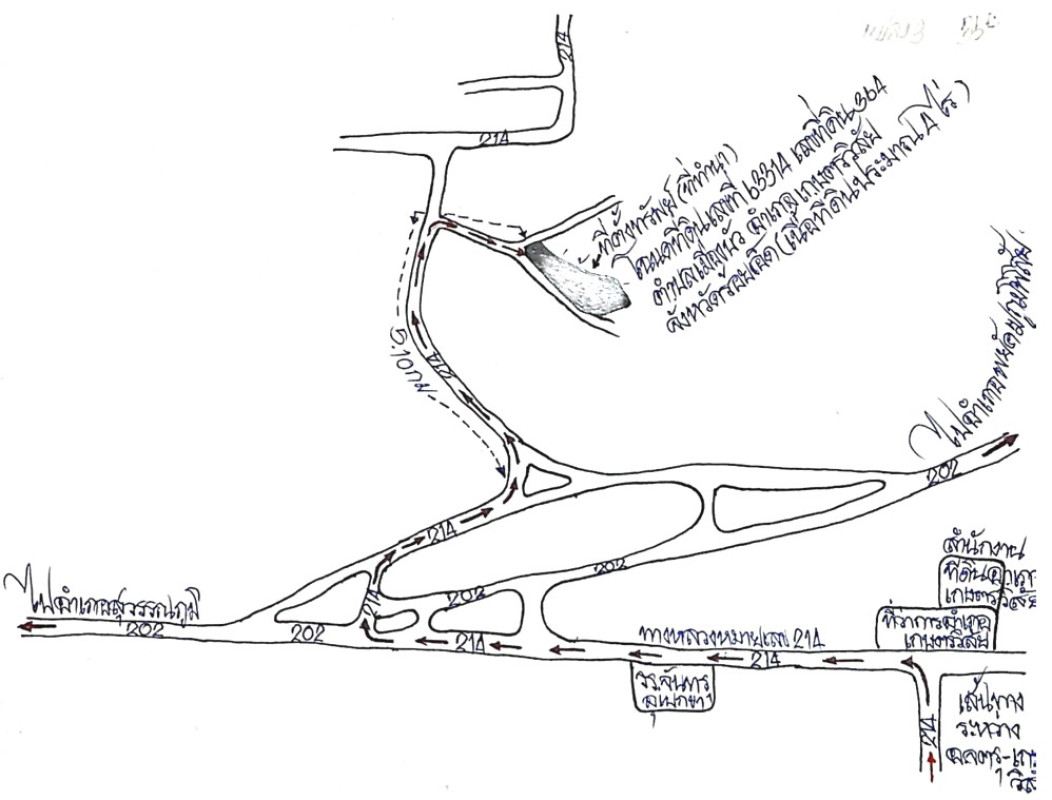 214
214
ที่ตั้งทรัพย์ (ที่ทำนา)
โฉนดที่ดินเลขที่ 63314 เลขที่ดิน 364
ตำบลเมืองบัว อำเภอเกษตรวิสัย
จังหวัดร้อยเอ็ด (เนื้อที่ดินประมาณ 4 ไร่)
5.10 กม
214
ไปอำเภอพยัคฆภูมิพิสัย
202
214
202
สำนักงาน
ที่ดินอำเภ
เกษตรวิสัย
ไปอำเภอสุวรรณภูมิ
202
202
214
202
214
ทางหลวงหมายเลข 214
214
ที่ว่าการอำเภอ
เกษตรวิสัย
214
เส้นทาง
ระหวาง